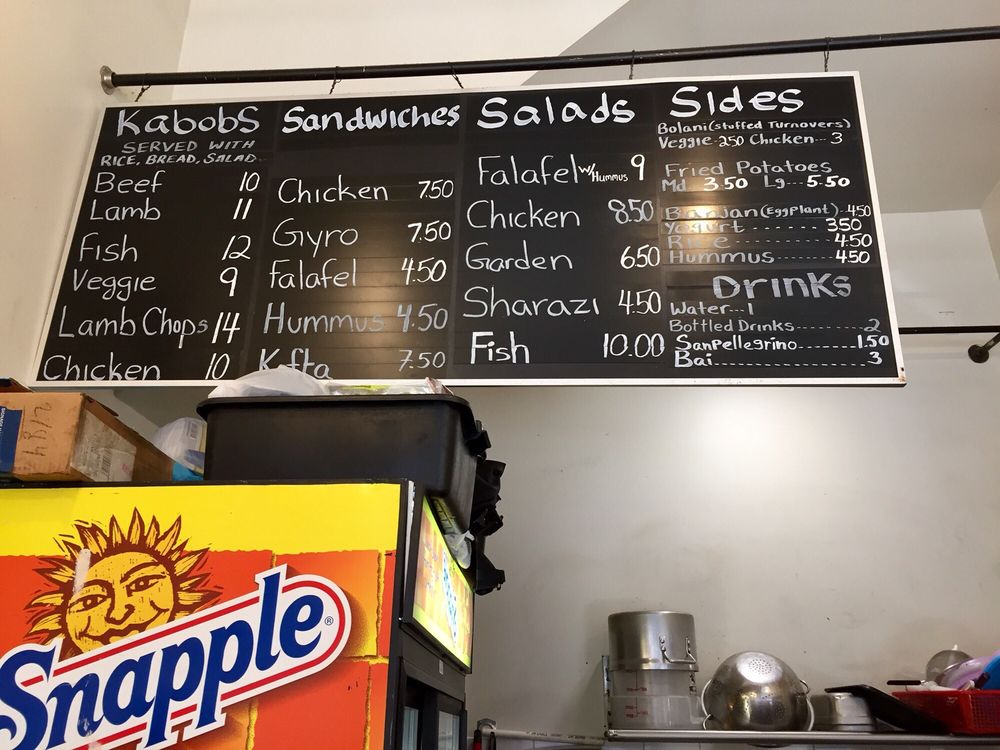 Kabobs
SERVED WITH
RICE, BREAD, SALAD
Beef 10
Lamb 11
Fish 12
Veggie 9
Lamb Chops 14
Chicken 10
Sandwiches
Chicken 7.50
Gyro 7.50
Falafel 4.50
Hummus 4.50
Kofta 7.50
Salads
Falafel w/Hummus 9
Chicken 8.50
Garden 6.50
Sharazi 4.50
Fish 10.00
Sides
Bolani (stuffed Turnovers)
Veggie-2.50 Chicken--3
Fried Potatoes
Md 3.50 Lg---5.50
Banjan (EggPlant)-4.50
Yogurt ------- 3.50
Rice --------- 4.50
Hummus------ 4.50
Drinks
Water--1
Bottled Drinks--------2
Sanpellegrino--------1.50
Bai------------------3
Snapple®